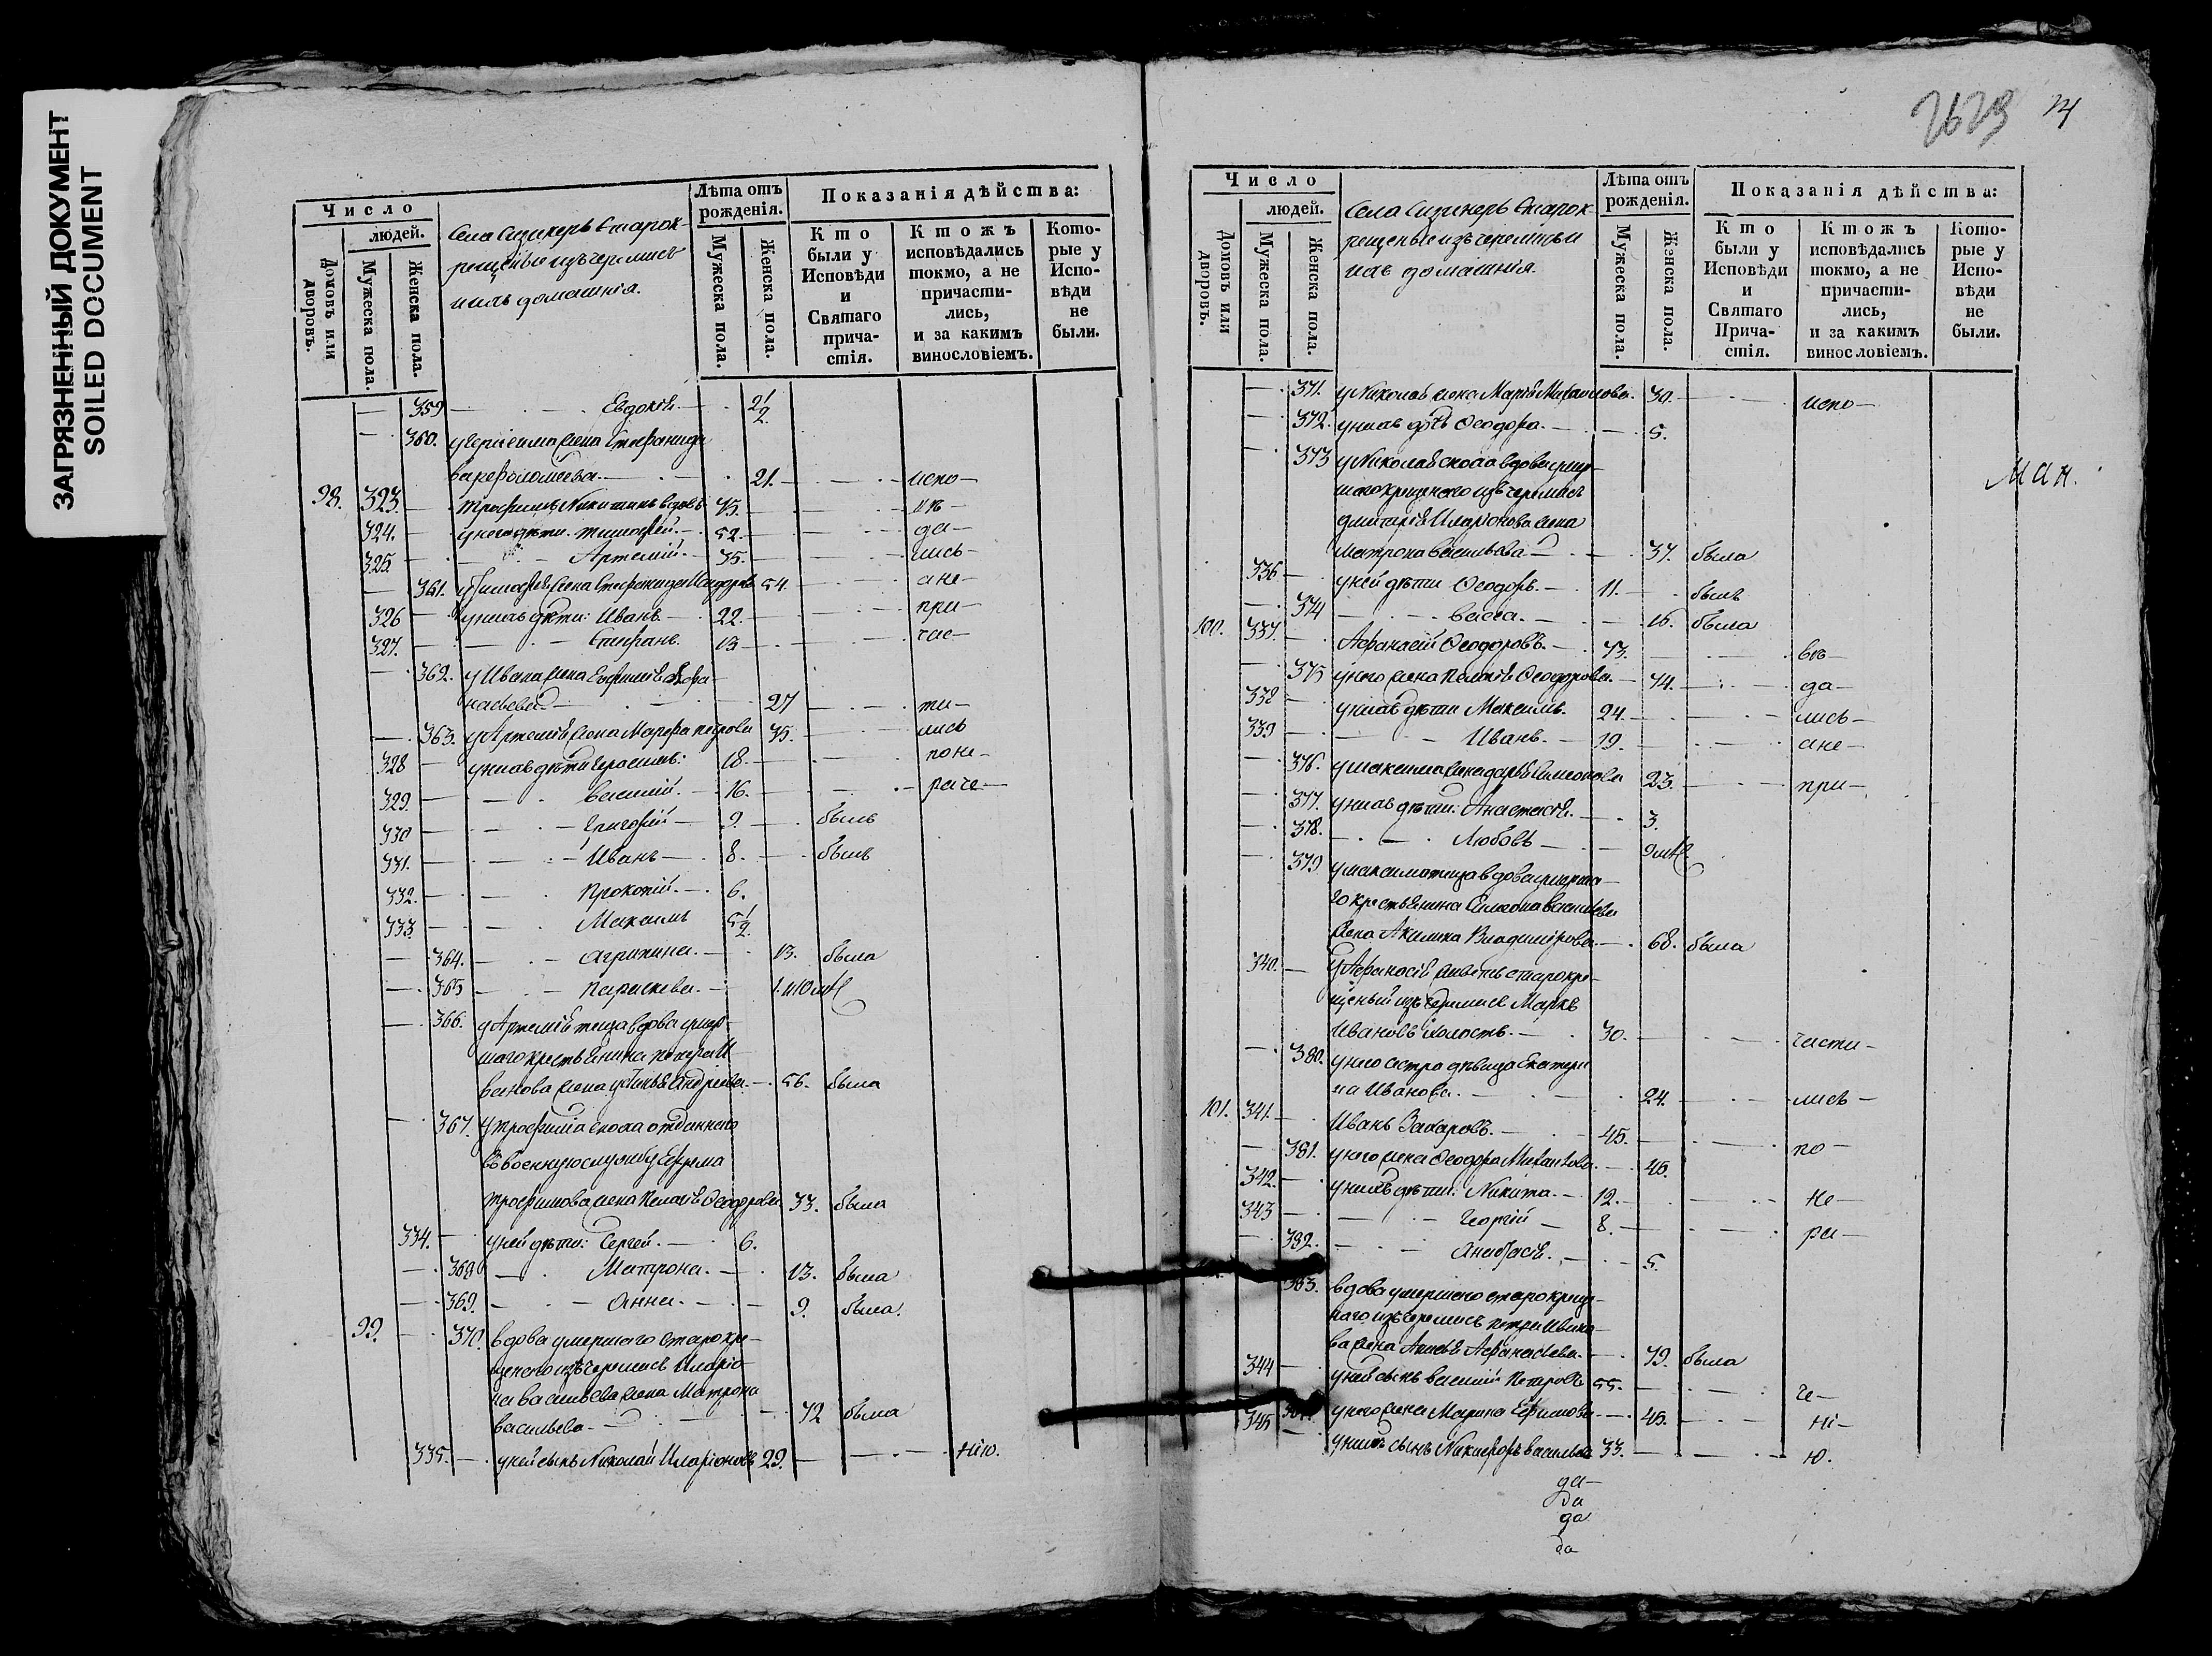 ЗАГРЯЗНЕННЫЙ ДОКУМЕНТ
SOILED DOCUMENT
Число
людей.
Домовъ или дворовъ.
Мужеска пола.
Женска пола.
Села Старок-
рещеные изъ черемисъ
ихъ домашнія.
Лѣта отъ рожденія.
Мужеска пола.
Женска пола.
Показанія дѣйства:
Кто были у Исповѣди и Святаго причастія.
Ктожъ исповѣдались токмо, а не причастились, и за какимъ винословіемъ.
Которые у Исповѣди не были.
359 Евдокія 2 1/2
360. у Герасима жена Стефанида
Варфоломеева 21. испо-
98. 323 Трофимъ Никитинъ вдовъ 75. вѣ-
324. у него дѣти: Тимофей 52. да-
325. Артемій 35. лись-
361. у Тимофея жена Стефанида 54. а не-
326 у нихъ дѣти: Иванъ 22. при-
327. Стефанъ 13 час-
362. у Ивана жена Евфимія Афа-
насьева 27 ти-
363. у Артемія жена Марфа Петрова 35. лись
328 у нихъ дѣти Герасимъ 18. по не-
329. Василій 16. раче-
330 Григорій 9. былъ
331. Иванъ 8. былъ
332. Прокопій 6.
333. Максимъ 5 1/2
364. Агрипина 13. была
365 Параскева 1. и 10 м
366. у Артемія теща вдова умер-
шаго крестьянина Петра И-
ванова жена Андреева 56. была
367. у Трофима сноха отданнаго
въ военную службу Ефрема
Трофимова жена Пелагія Ѳеодорова 33. была
334. у ней дѣти: Сергей 6.
368 Матрона 13. была
369. Анна 9. была.
99. 370. вдова умершаго старокре-
щенаго изъ черемисъ Иларіо-
на Васильева жена Матрона
Васильева 72 была
335. у ней сынъ Николай Иларіоновъ 29. нію.
2629
Число
людей.
Домовъ или дворовъ.
Мужеска пола.
Женска пола.
Села Старок-
рещеные изъ черемисъ и
ихъ домашнія.
Лѣта отъ рожденія.
Мужеска пола.
Женска пола.
Показанія дѣйства:
Кто были у Исповѣди и Святаго Причастія.
Ктожъ исповѣдались токмо, а не причастились, и за какимъ винословіемъ.
Которые у Исповѣди не были.
371. у Николая жена Марія Михаилова 30. испо-
372. у нихъ дочь Ѳеодора 5.
373 у Николая сноха вдова умер-
шаго крещенаго изъ черемисъ
Дмитрія Иларіонова жена
Матрона Васильева 37. была
336 у ней дѣти Ѳеодоръ 11. былъ
374 Васса 16. была
100. 337. Афанасій Ѳеодоровъ 73. вѣ-
375 у него жена Пелагія Ѳеодорова 74. да-
338 у нихъ дѣти Максимъ 24. лись-
339 Иванъ 19. а не-
376. у Максима жена Дарья Симеонова 23. при-
377. у нихъ дѣти: Анастасія 3.
378. Любовь 9 м
379 у Максима теща вдова умерша-
го крестьянина Симеона Васильева
жена Акилина Владимірова 68. была
340. у Афанасія живетъ старокре-
щеный изъ черемисъ Маркъ
Ивановъ холостъ 30. части-
380. у него сестра дѣвица Екатери
на Иванова 24. лись-
101. 341. Иванъ Захаровъ 45. по-
381. у него жена Ѳеодора Михайлова 46.
342. у нихъ дѣти: Никита 12. не-
343 Георгій 8. ра-
382. 5.
383. вдова умершаго старокреще-
наго изъ черемисъ Петра Ивано-
ва жена Афанасьева 79. была
344 у ней сынъ Василій Петровъ 55. че-
у него жена Марина Ефимова 45. ні-
345 у нихъ сынъ Никифоръ Васильевъ 33. ю.
да-
да
да
да